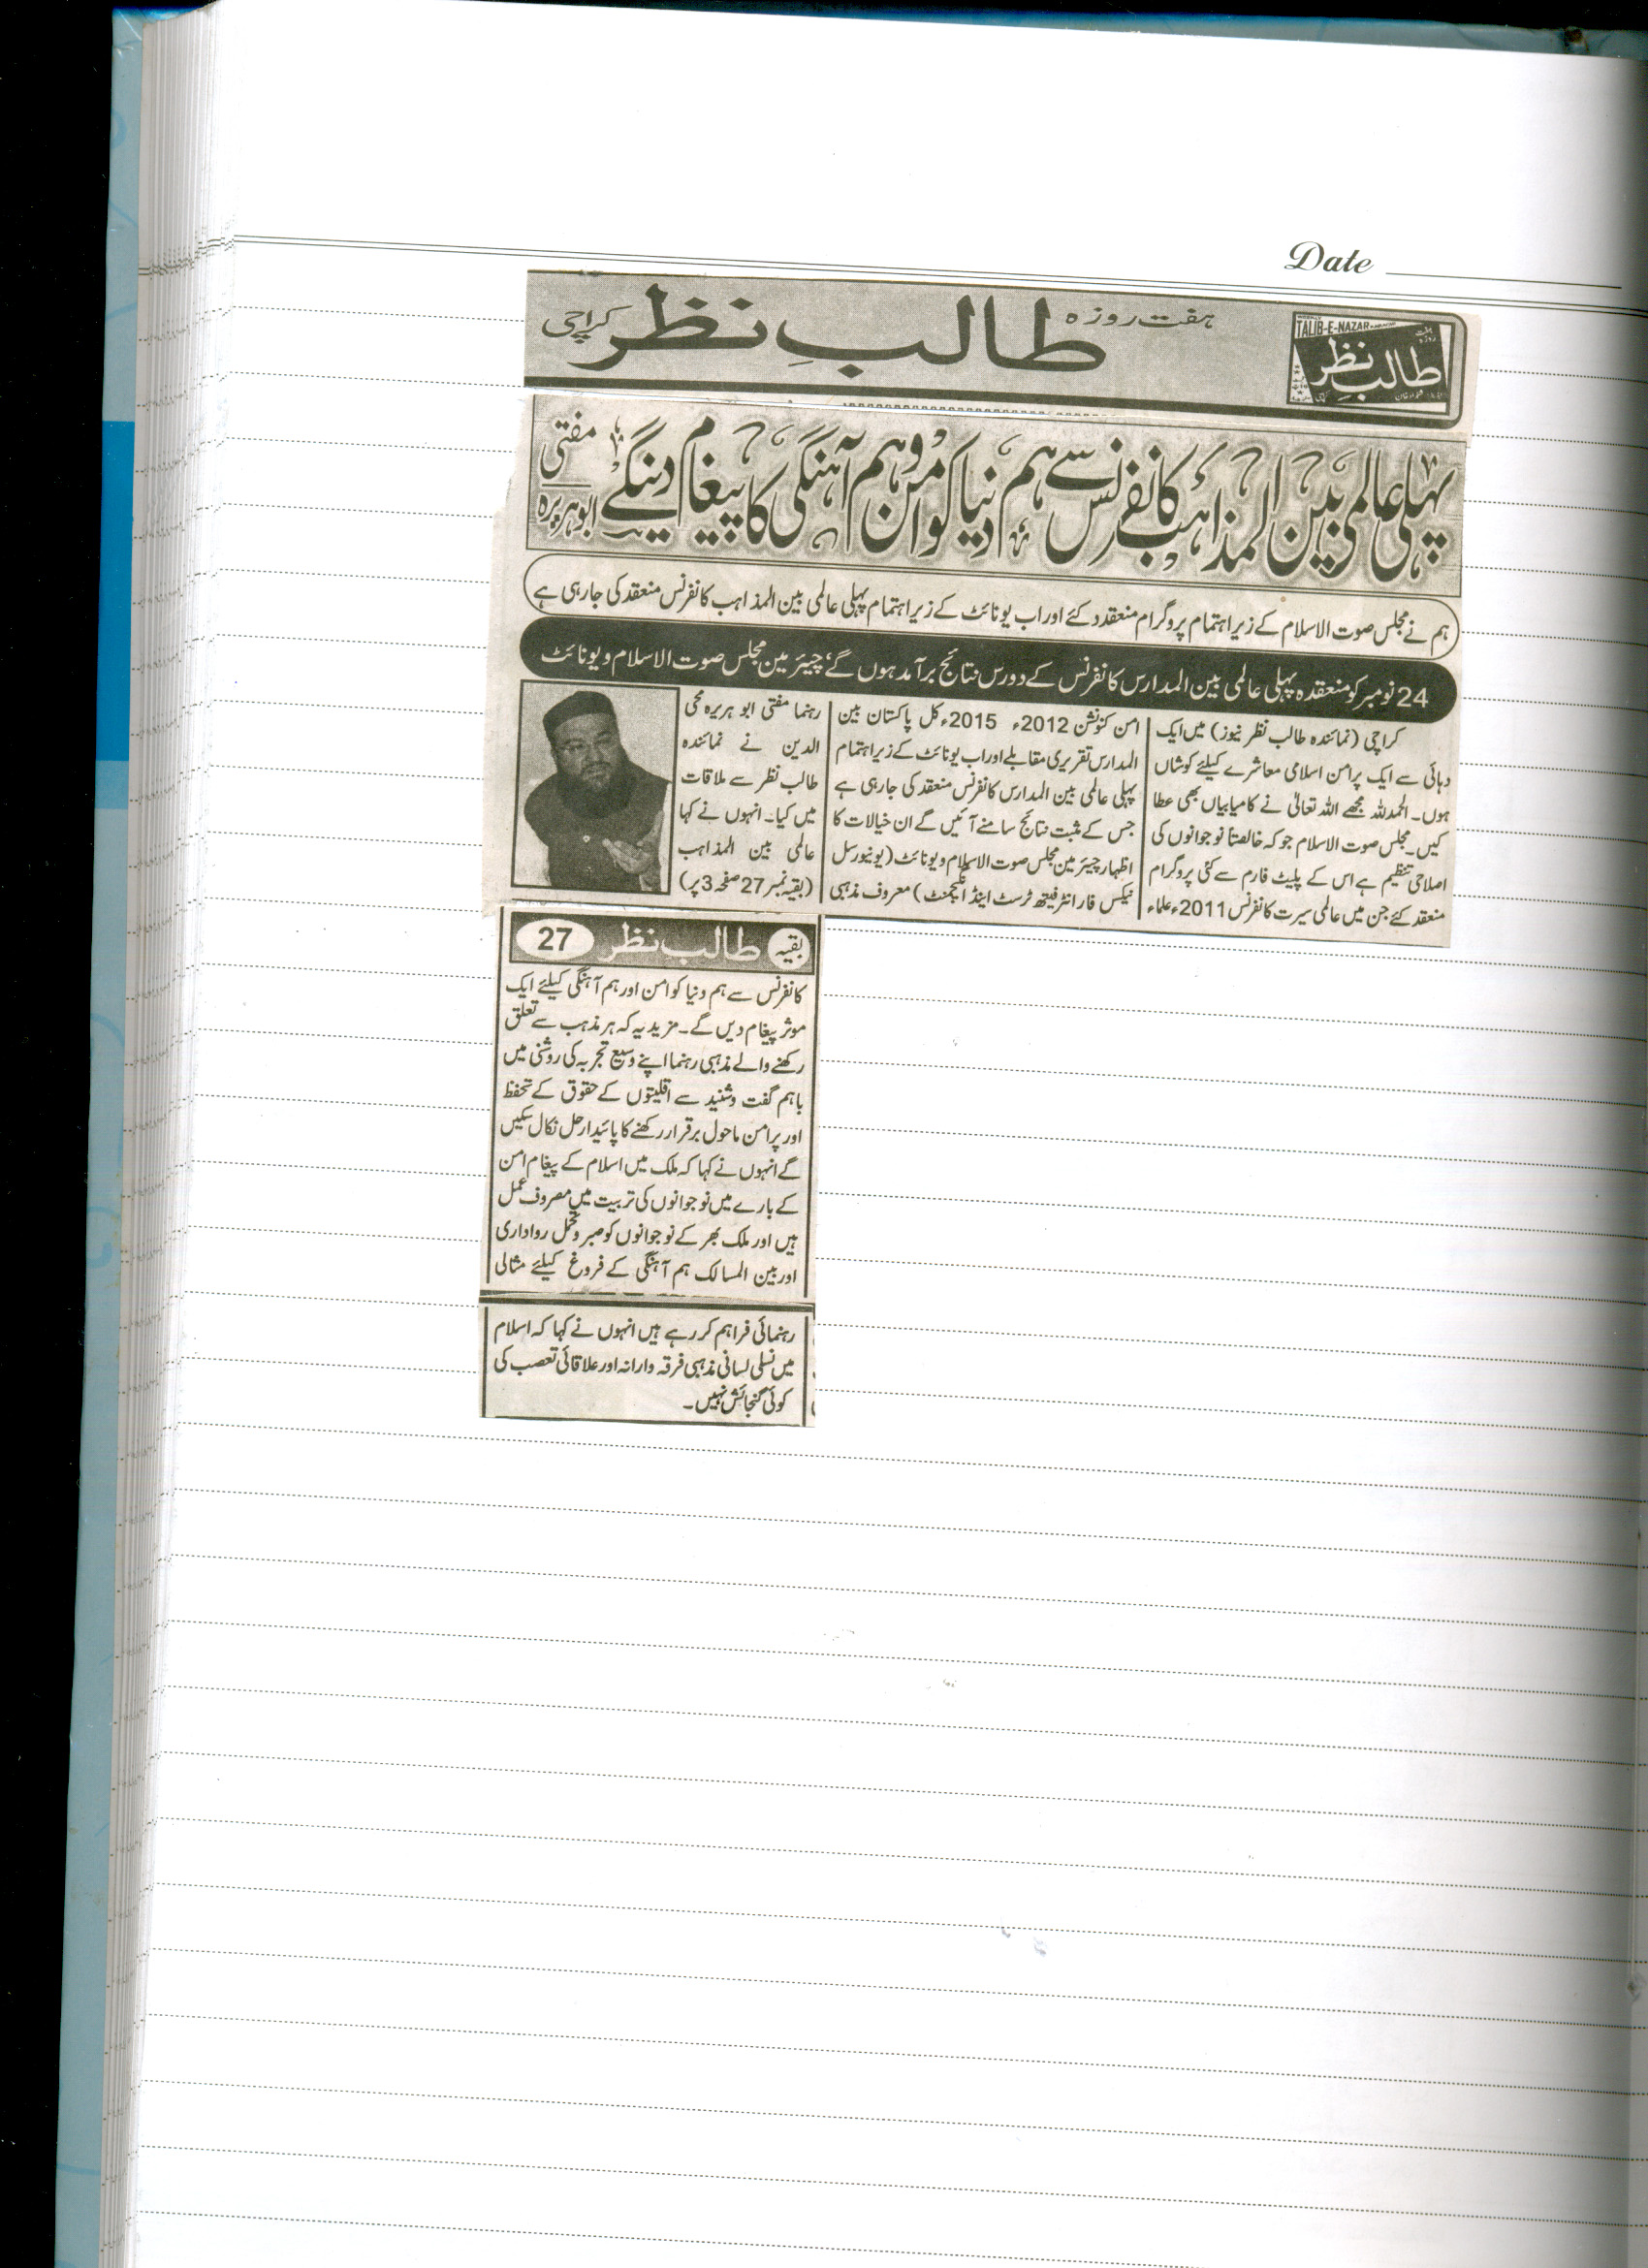 Date
ہفت روزہ طالبِ نظر کراچی
WEEKLY
TALIB-E-NAZAR
ہفت روزہ
طالبِ نظر
پہلی عالمی بین المذاہب کانفرنس سے ہم دنیا کو امن وہم آہنگی کا پیغام دینگے مفتی ابوہریرہ
ہم نے مجلس صوت الاسلام کے زیر اہتمام پروگرام منعقدد کئے اور اب یونائٹ کے زیر اہتمام پہلی عالمی بین المذاہب کانفرنس منعقد کی جارہی ہے
24 نومبر کو منعقدہ پہلی عالمی بین المدارس کانفرنس کے دورس نتائج برآمد ہوں گے، چیئرمین مجلس صوت الاسلام ویونائٹ
کراچی (نمائندہ طالب نظر نیوز) میں ایک
دہائی سے ایک پرامن اسلامی معاشرے کیلئے کوشاں
ہوں۔ الحمدللہ مجھے اللہ تعالیٰ نے کامیابیاں بھی عطا
کیں۔ مجلس صوت الاسلام جوکہ خالصتاً نوجوانوں کی
اصلاحی تنظیم ہے اس کے پلیٹ فارم سے کئی پروگرام
منعقد کئے جن میں عالمی سیرت کانفرنس 2011ء علماء
امن کنونشن 2012ء 2015ء کل پاکستان بین
المدارس تقریری مقابلے اور اب یونائٹ کے زیر اہتمام
پہلی عالمی بین المدارس کانفرنس منعقد کی جارہی ہے
جس کے مثبت نتائج سامنے آئیں گے ان خیالات کا
اظہار چیئرمین مجلس صوت الاسلام ویونائٹ (یونیورسل
نیکس فار انٹرفیتھ ٹرسٹ اینڈ انگیجمنٹ) معروف مذہبی
رہنما مفتی ابو ہریرہ محی
الدین نے نمائندہ
طالب نظر سے ملاقات
میں کیا۔ انہوں نے کہا
عالمی بین المذاہب
(بقیہ نمبر 27 صفحہ 3 پر)
بقیہ طالب نظر 27
کانفرنس سے ہم دنیا کو امن اور ہم آہنگی کیلئے ایک
موثر پیغام دیں گے۔ مزید یہ کہ ہر مذہب سے تعلق
رکھنے والے مذہبی رہنما اپنے وسیع تجربہ کی روشنی میں
باہم گفت وشنید سے اقلیتوں کے حقوق کے تحفظ
اور پرامن ماحول برقرار رکھنے کا پائیدار حل نکال سکیں
گے انہوں نے کہا کہ ملک میں اسلام کے پیغام امن
کے بارے میں نوجوانوں کی تربیت میں مصروف عمل
ہیں اور ملک بھر کے نوجوانوں کو صبر وتحمل رواداری
اور بین المسالک ہم آہنگی کے فروغ کیلئے مثالی
رہنمائی فراہم کر رہے ہیں انہوں نے کہا کہ اسلام
میں نسلی لسانی مذہبی فرقہ وارانہ اور علاقائی تعصب کی
کوئی گنجائش نہیں۔